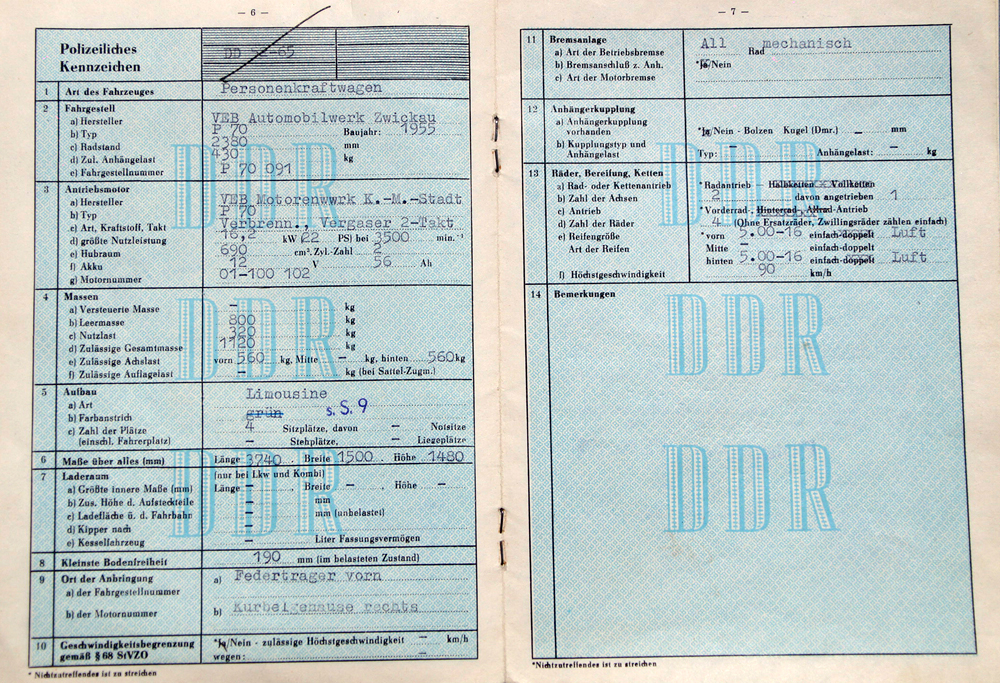 — 6 —
Polizeiliches
Kennzeichen
DD -65
1 Art des Fahrzeuges Personenkraftwagen
2 Fahrgestell
a) Hersteller VEB Automobilwerk Zwickau
b) Typ P 70 Baujahr: 1955
c) Radstand 2380 mm
d) Zul. Anhängelast 430 kg
e) Fahrgestellnummer P 70 091
3 Antriebsmotor
a) Hersteller VEB Motorenwwrk K.-M.-Stadt
b) Typ P 70
c) Art, Kraftstoff, Takt Verbrenn., Vergaser 2-Takt
d) größte Nutzleistung 16,2 kW (22 PS) bei 3500 min.⁻¹
e) Hubraum 690 cm³. Zyl.-Zahl 2
f) Akku 12 V 56 Ah
g) Motornummer 01-100 102
4 Massen
a) Versteuerte Masse — kg
b) Leermasse 800 kg
c) Nutzlast 320 kg
d) Zulässige Gesamtmasse 1120 kg
e) Zulässige Achslast vorn 560 kg, Mitte — kg, hinten 560 kg
f) Zulässige Auflagelast — kg (bei Sattel-Zugm.)
5 Aufbau
a) Art Limousine
b) Farbanstrich grün s. S. 9
c) Zahl der Plätze 4 Sitzplätze, davon — Notsitze
(einschl. Fahrerplatz) — Stehplätze, — Liegeplätze
6 Maße über alles (mm) Länge 3740 Breite 1500 Höhe 1480
7 Laderaum (nur bei Lkw und Kombi)
a) Größte innere Maße (mm) Länge — , Breite — , Höhe —
b) Zus. Höhe d. Aufsteckteile — mm
c) Ladefläche ü. d. Fahrbahn — mm (unbelastet)
d) Kipper nach —
e) Kesselfahrzeug — Liter Fassungsvermögen
8 Kleinste Bodenfreiheit 190 mm (im belasteten Zustand)
9 Ort der Anbringung a) Federträger vorn
a) der Fahrgestellnummer
b) der Motornummer b) Kurbelgehäuse rechts
10 Geschwindigkeitsbegrenzung *Ja/Nein - zulässige Höchstgeschwindigkeit — km/h
gemäß § 68 StVZO wegen: —
* Nichtzutreffendes ist zu streichen
— 7 —
11 Bremsanlage
a) Art der Betriebsbremse All Rad mechanisch
b) Bremsanschluß z. Anh. *Ja/Nein
c) Art der Motorbremse
12 Anhängerkupplung
a) Anhängerkupplung
vorhanden *Ja/Nein - Bolzen Kugel (Dmr.) — mm
b) Kupplungstyp und
Anhängelast Typ: — Anhängelast: — kg
13 Räder, Bereifung, Ketten
a) Rad- oder Kettenantrieb *Radantrieb — Halbketten - Vollketten
b) Zahl der Achsen 2 davon angetrieben 1
c) Antrieb *Vorderrad-, Hinterrad-, Allrad-Antrieb
d) Zahl der Räder 4 (Ohne Ersatzräder, Zwillingsräder zählen einfach)
e) Reifengröße *vorn 5.00-16 einfach-doppelt Luft
Art der Reifen Mitte — einfach-doppelt
hinten 5.00-16 einfach-doppelt Luft
f) Höchstgeschwindigkeit 90 km/h
14 Bemerkungen
DDR
DDR
DDR
DDR
DDR
DDR
*Nichtzutreffendes ist zu streichen